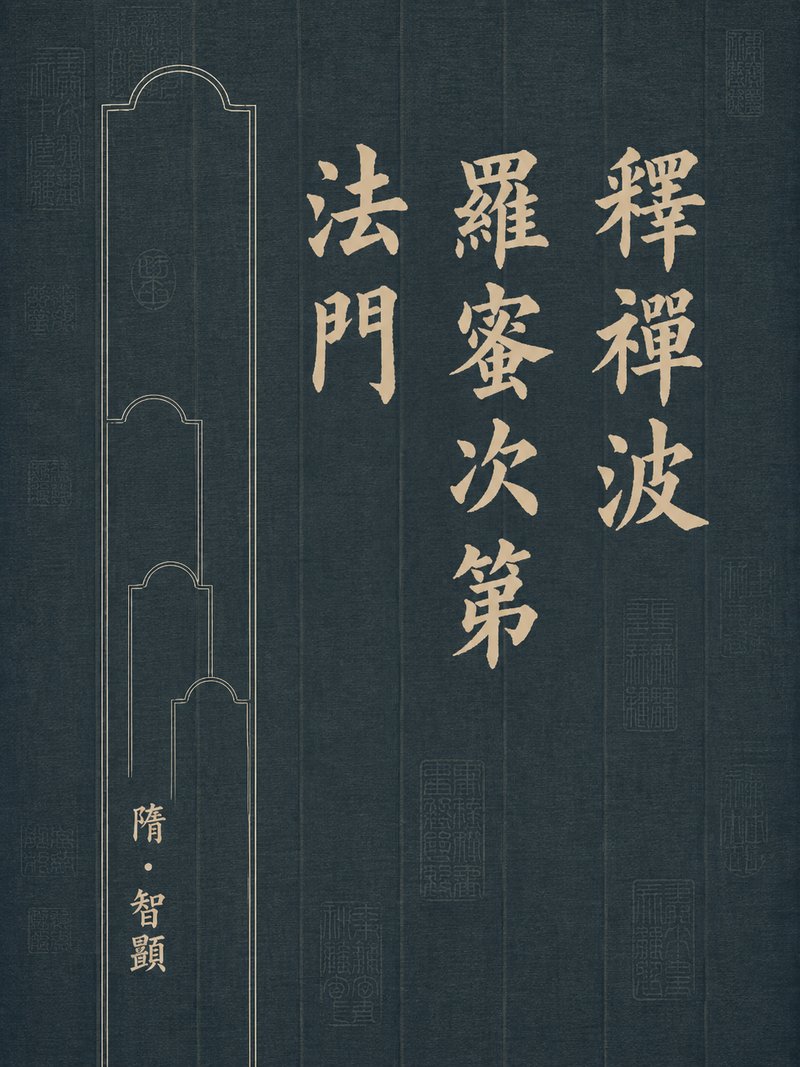 釋禪波
羅蜜次第
法門
隋·智顕